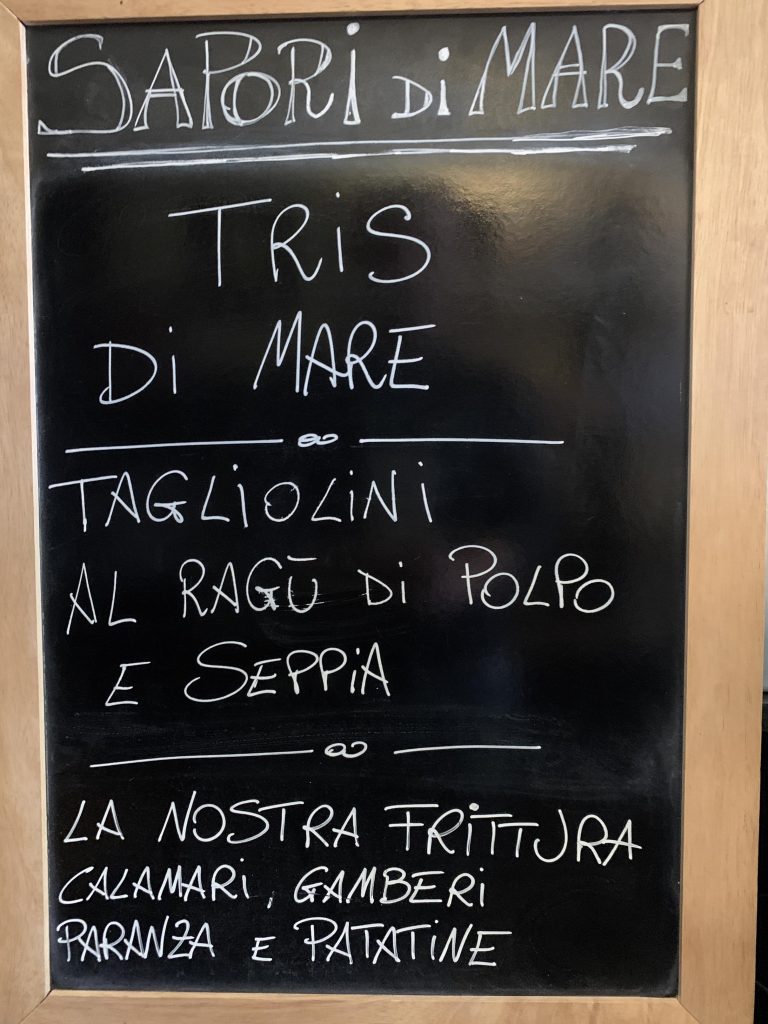 SAPORi Di MARE
TRiS
Di MARE
TAGLiOLiNi
AL RAGŪ Di POLPO
E SEPPiA
LA NOSTRA FRiTTURA
CALAMARi, GAMBERi
PARANZA E PATATiNE